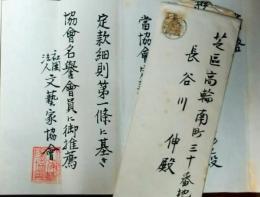 芝区高輪南町三十番地
長谷川伸殿
當協會
定款細則第一條に基き
協會名譽會員に御推薦
社団法人文藝家協會